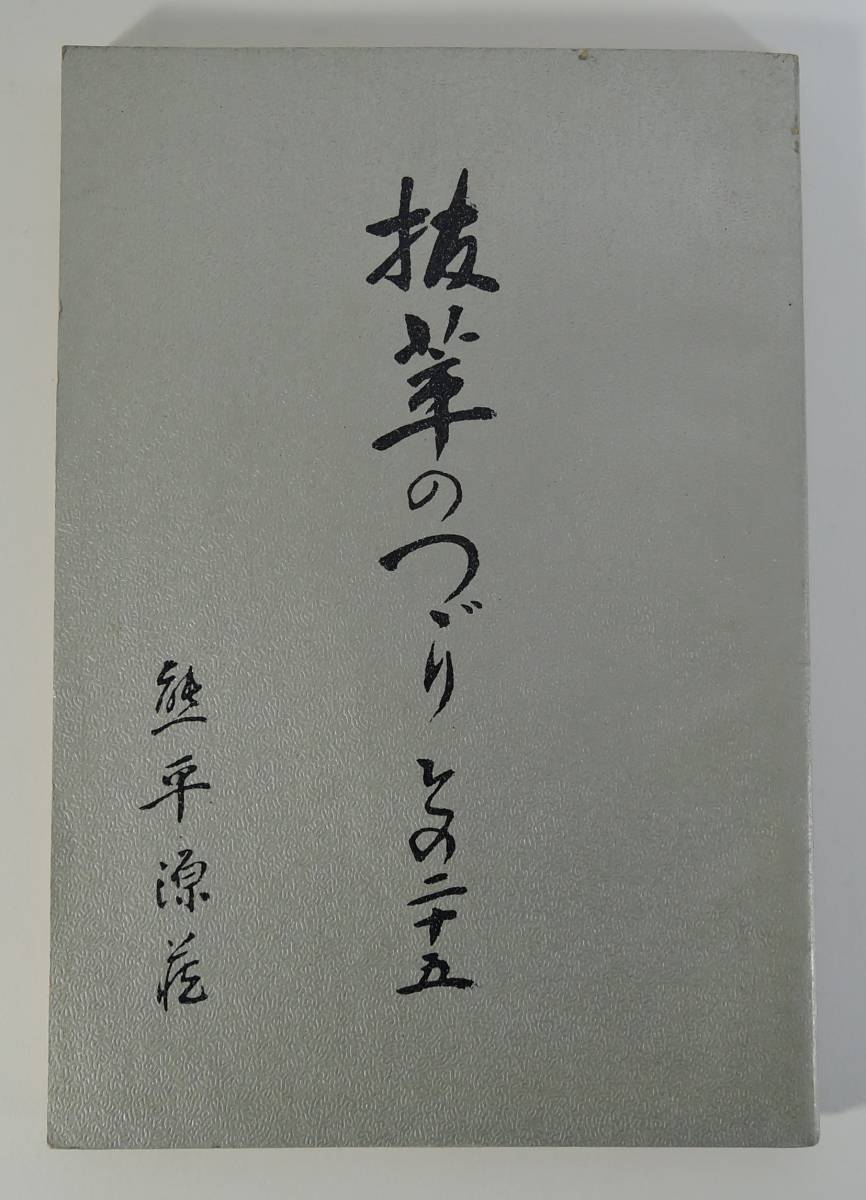 抜萃のつづり その二十五
熊平源蔵